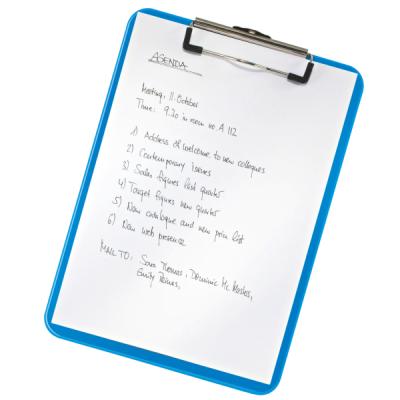 AGENDA
Meeting, 11 October
Time: 9.30 in room no. A 112
1) Address of welcome to new collegues
2) Contemporary issues
3) Sales figures last quarter
4) Target figures new quarter
5) New catalogue and new price list
6) New web presence
MAIL TO: Sara Thomas, Dominic Mc
Emily